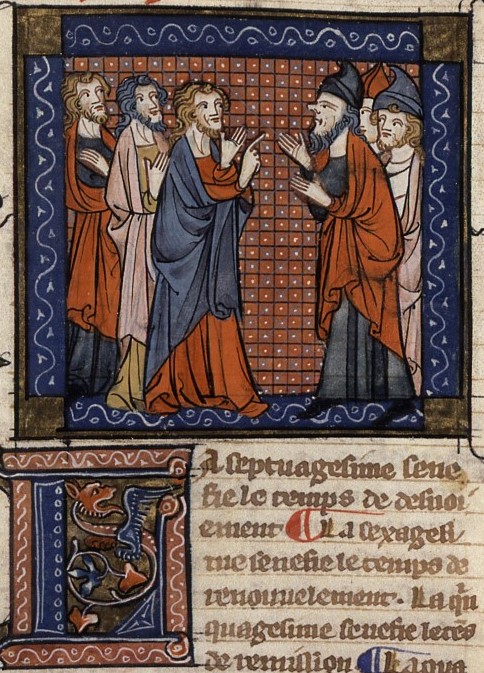 La septuagesime sene
fie le temps de desuoi
ement La sexagesi
me senefie le temps de
renouuelement. La qui
quagesime senefie le tẽs
de remission La qua